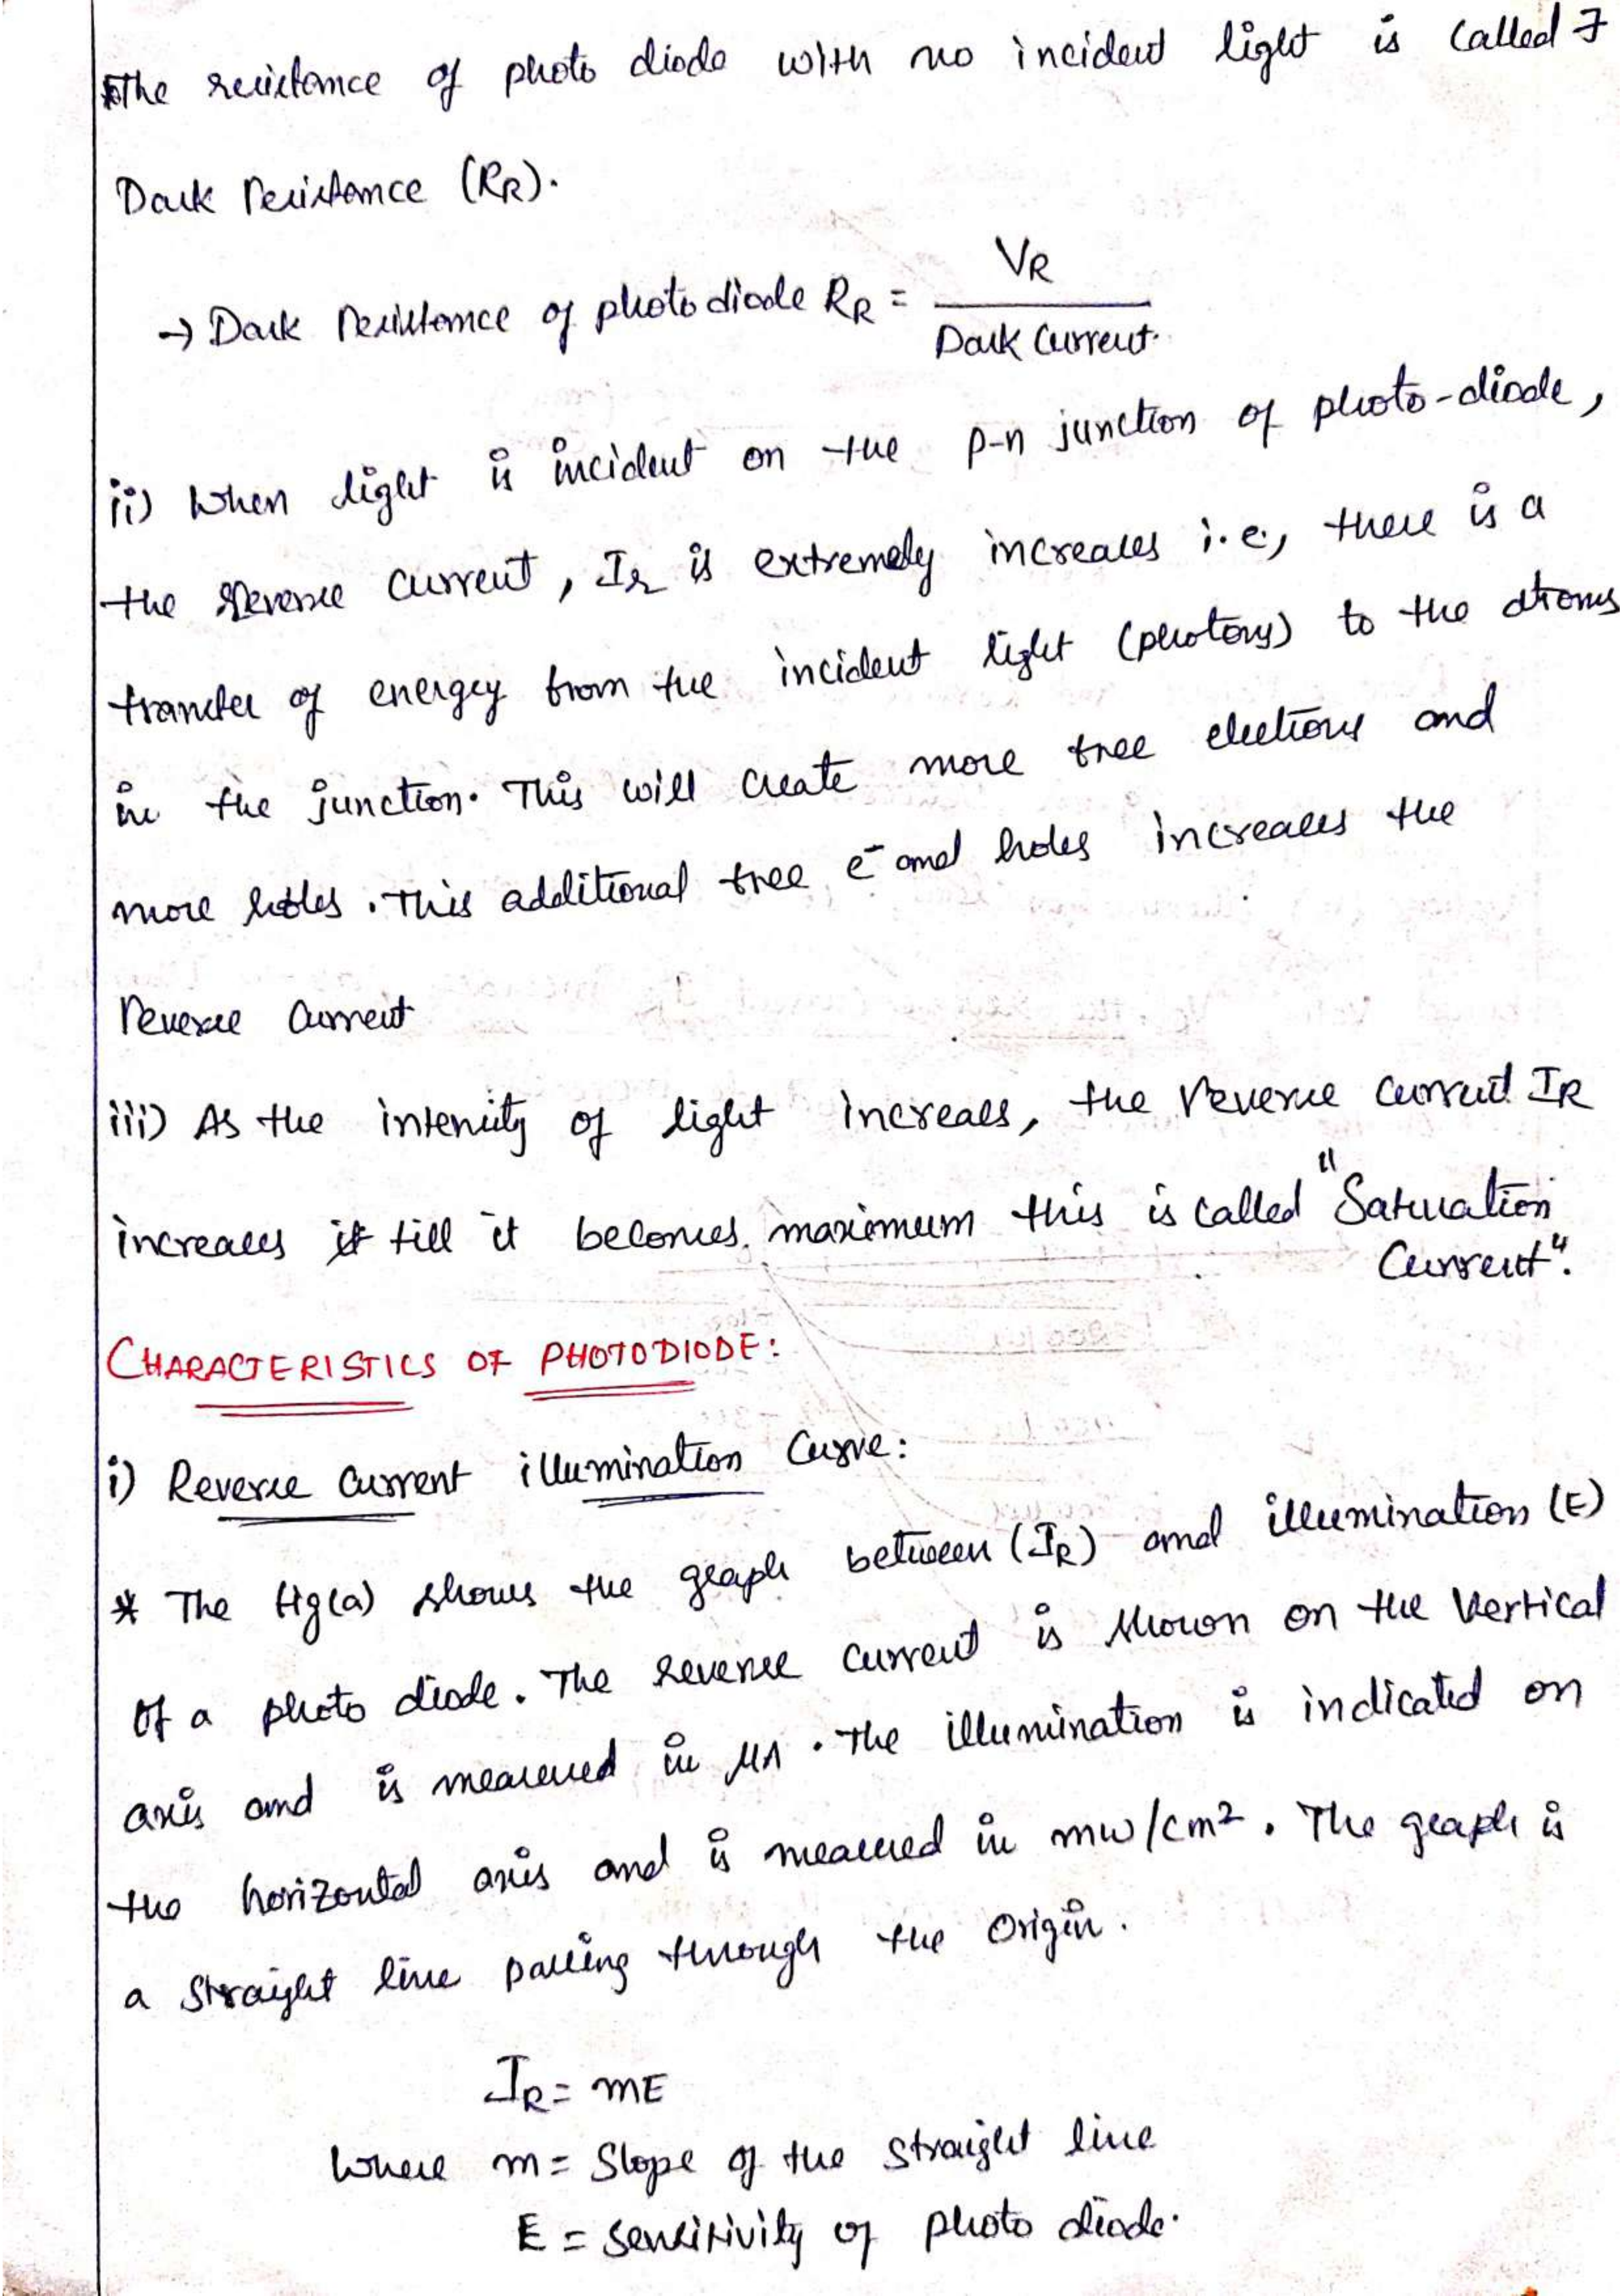 The resistance of photo diode with no incident light is called 7
Dark resistance (RR).
→ Dark resistance of photo diode RR = VR / Dark Current.
ii) When light is incident on the p-n junction of photo-diode,
the reverse current, Ir is extremely increases i.e., there is a
transfer of energy from the incident light (photons) to the atoms
in the junction. This will create more free electrons and
more holes. This additional free e- and holes increases the
reverse current
iii) As the intensity of light increases, the reverse current IR
increases it till it becomes maximum this is called "Saturation
Current".
CHARACTERISTICS OF PHOTODIODE:
i) Reverse current illumination Curve:
* The fig(a) shows the graph between (IR) and illumination (E)
of a photo diode. The reverse current is shown on the vertical
axis and is measured in μA. The illumination is indicated on
the horizontal axis and is measured in mw/cm². The graph is
a straight line passing through the origin.
IR = mE
Where m = Slope of the straight line
E = sensitivity of photo diode.